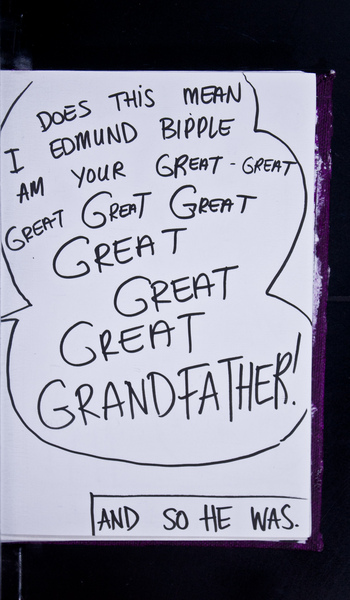 DOES THIS MEAN
I EDMUND BIPPLE
AM YOUR GREAT-GREAT
GREAT GREAT GREAT
GREAT
GREAT
GREAT
GRANDFATHER!
AND SO HE WAS.